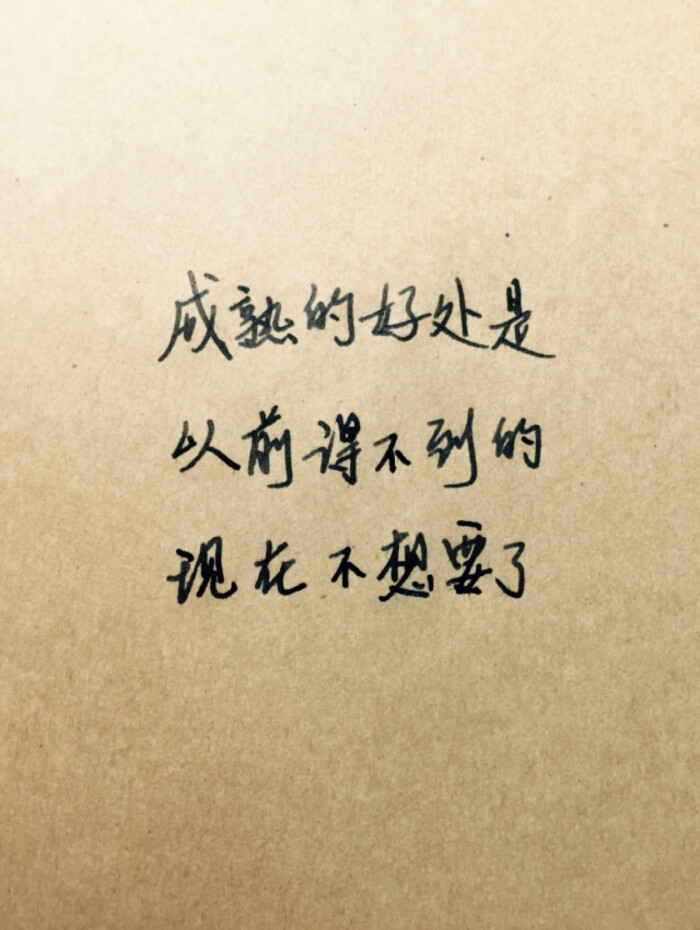 成熟的好处是
以前得不到的
现在不想要了